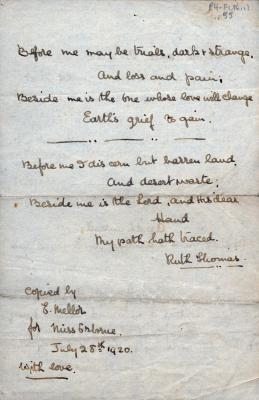 Before me may be trials, dark & strange,
And loss and pain;
Beside me is the One whose love will change
Earth's grief to gain.
Before me I discern but barren land,
And desert waste;
Beside me is the Lord, and His dear
Hand
My path hath traced.
Ruth Thomas.
Copied by
E. Mellor
for Miss Osborne.
July 28th 1920.
With love.